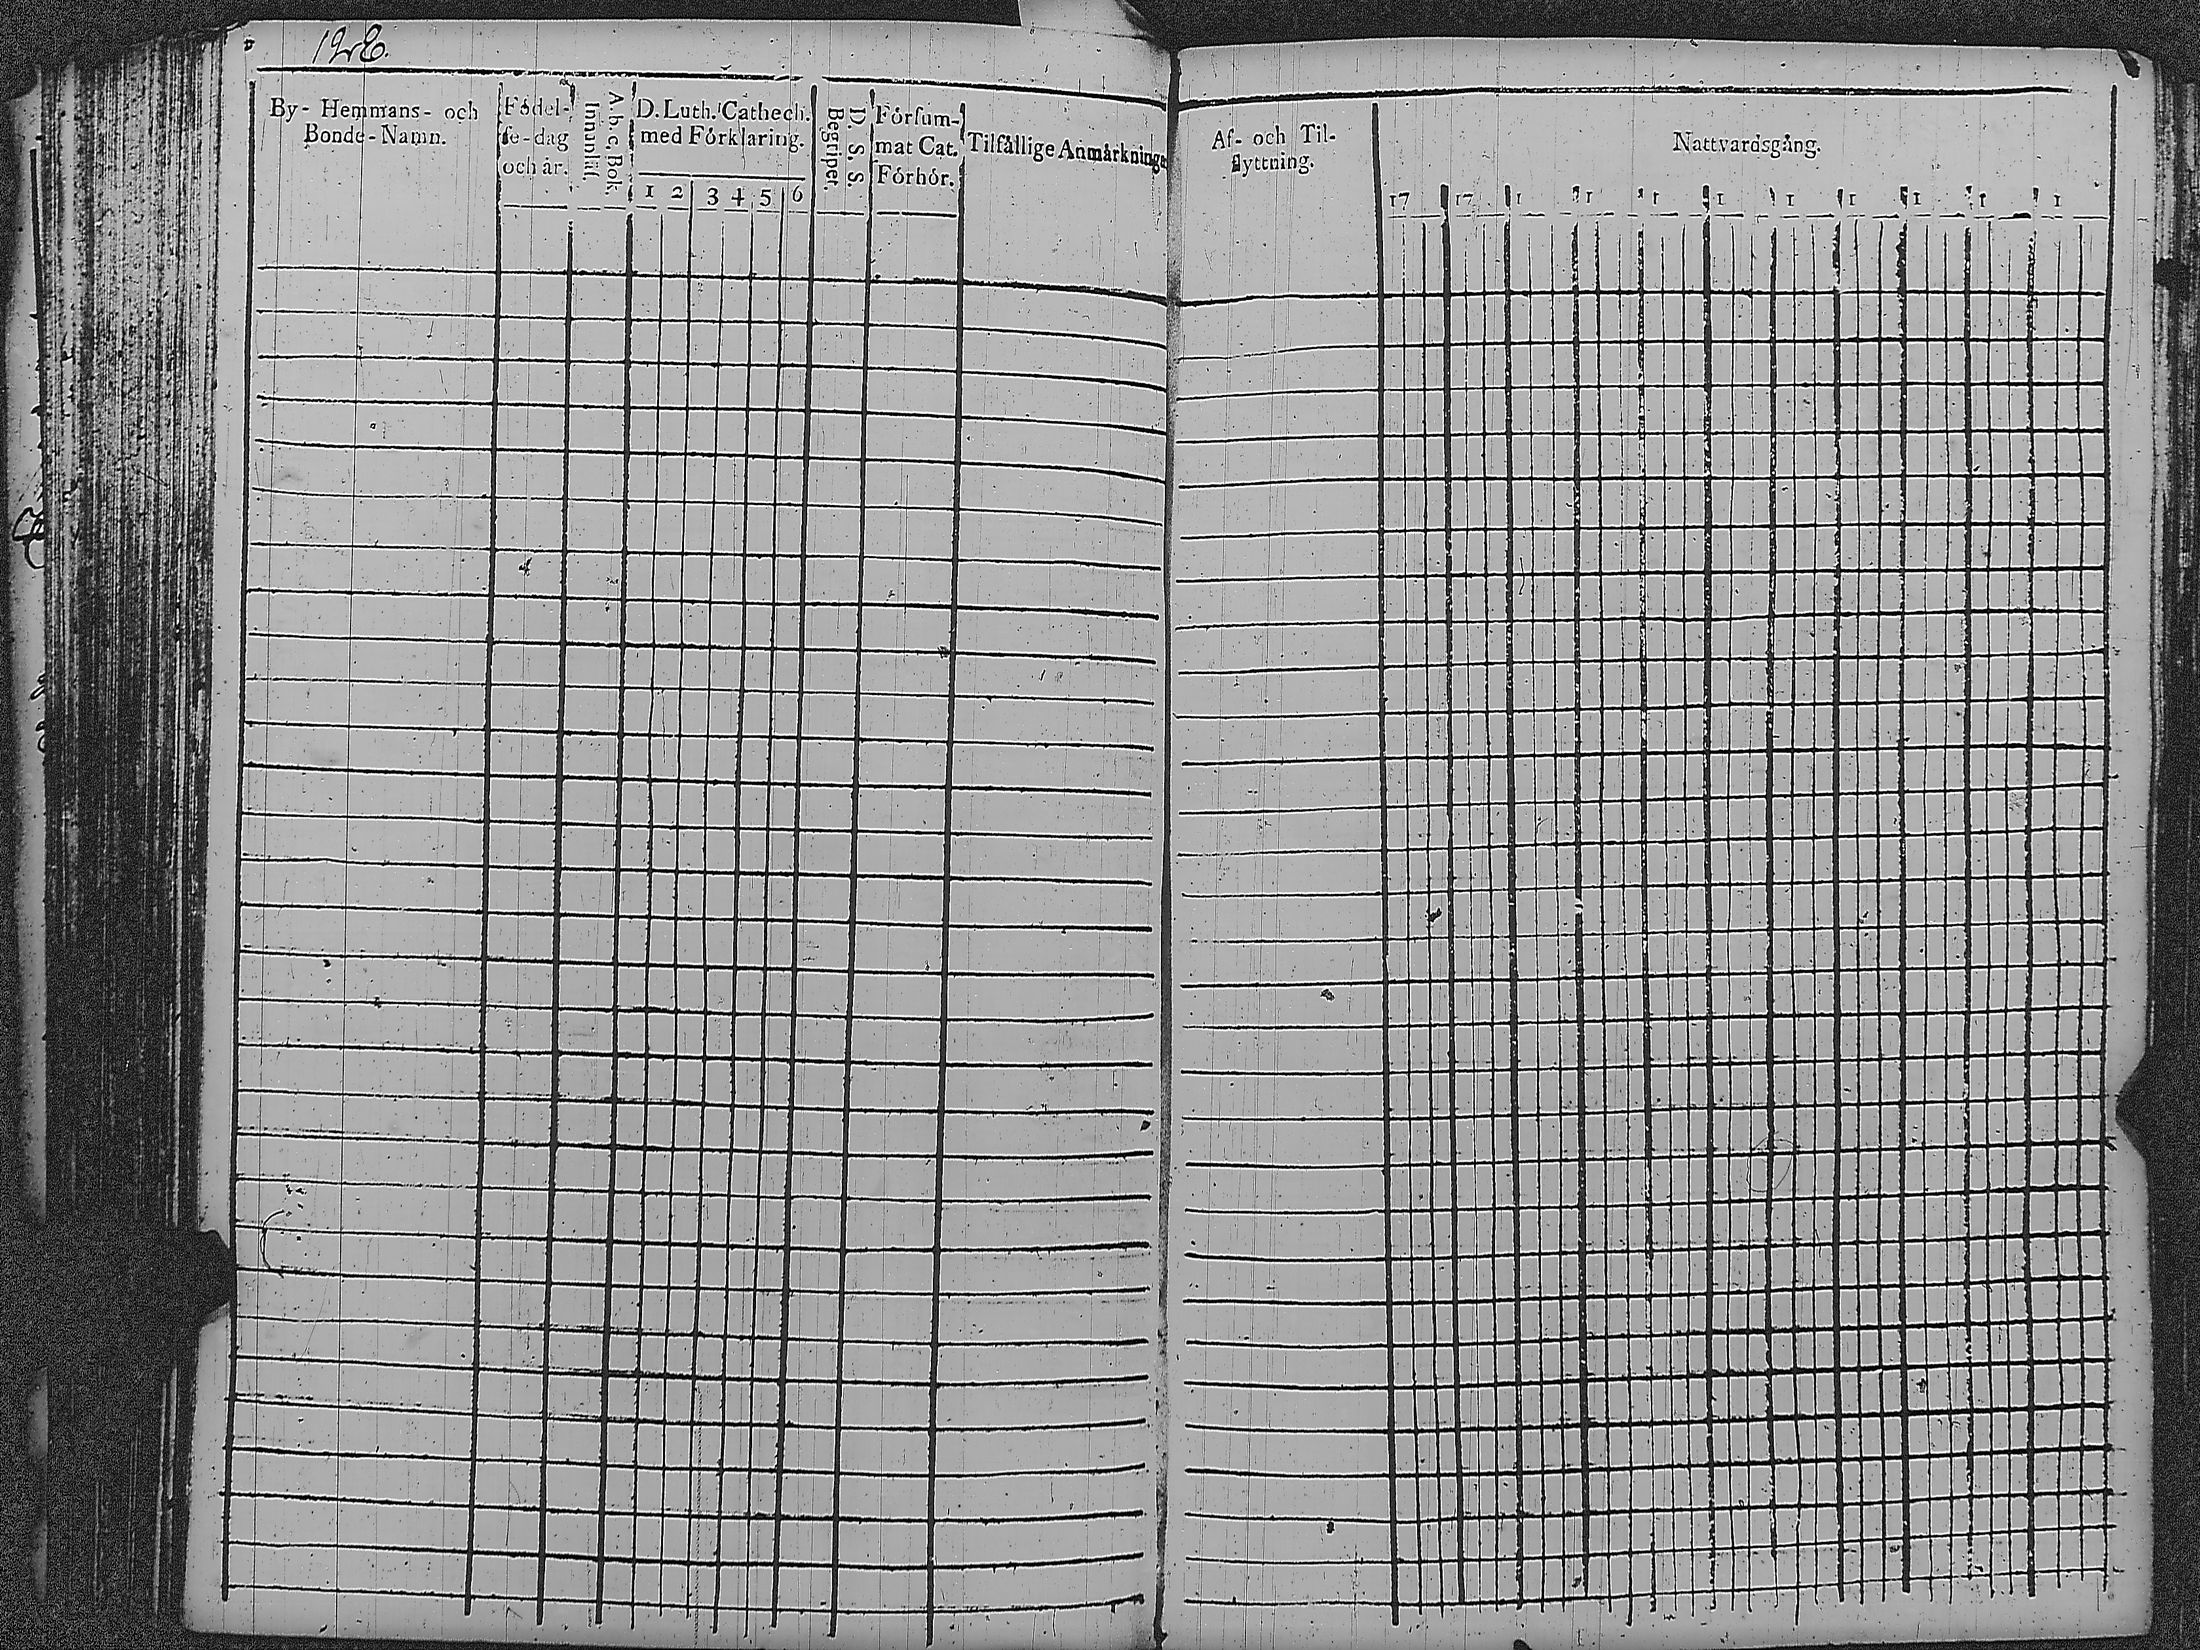 By- Hemmans- och
Bonde-Namn.
Födel-
se-dag
och år.
A. b. c. Bok.
Innanläs
D. Luth. Cathech.
med Förklaring.
1 2 3 4 5 6
D. S. S.
Begriper.
Försum-
mat Cat.
Förhör.
Tilfällige Anmärkninge
Af- och Til-
flyttning.
Nattvardsgång.
17 17 1 1 1 1 1 1 1 1 1